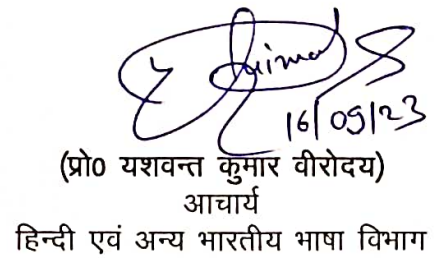 16/09/23
(प्रो0 यशवन्त कुमार वीरोदय)
आचार्य
हिन्दी एवं अन्य भारतीय भाषा विभाग